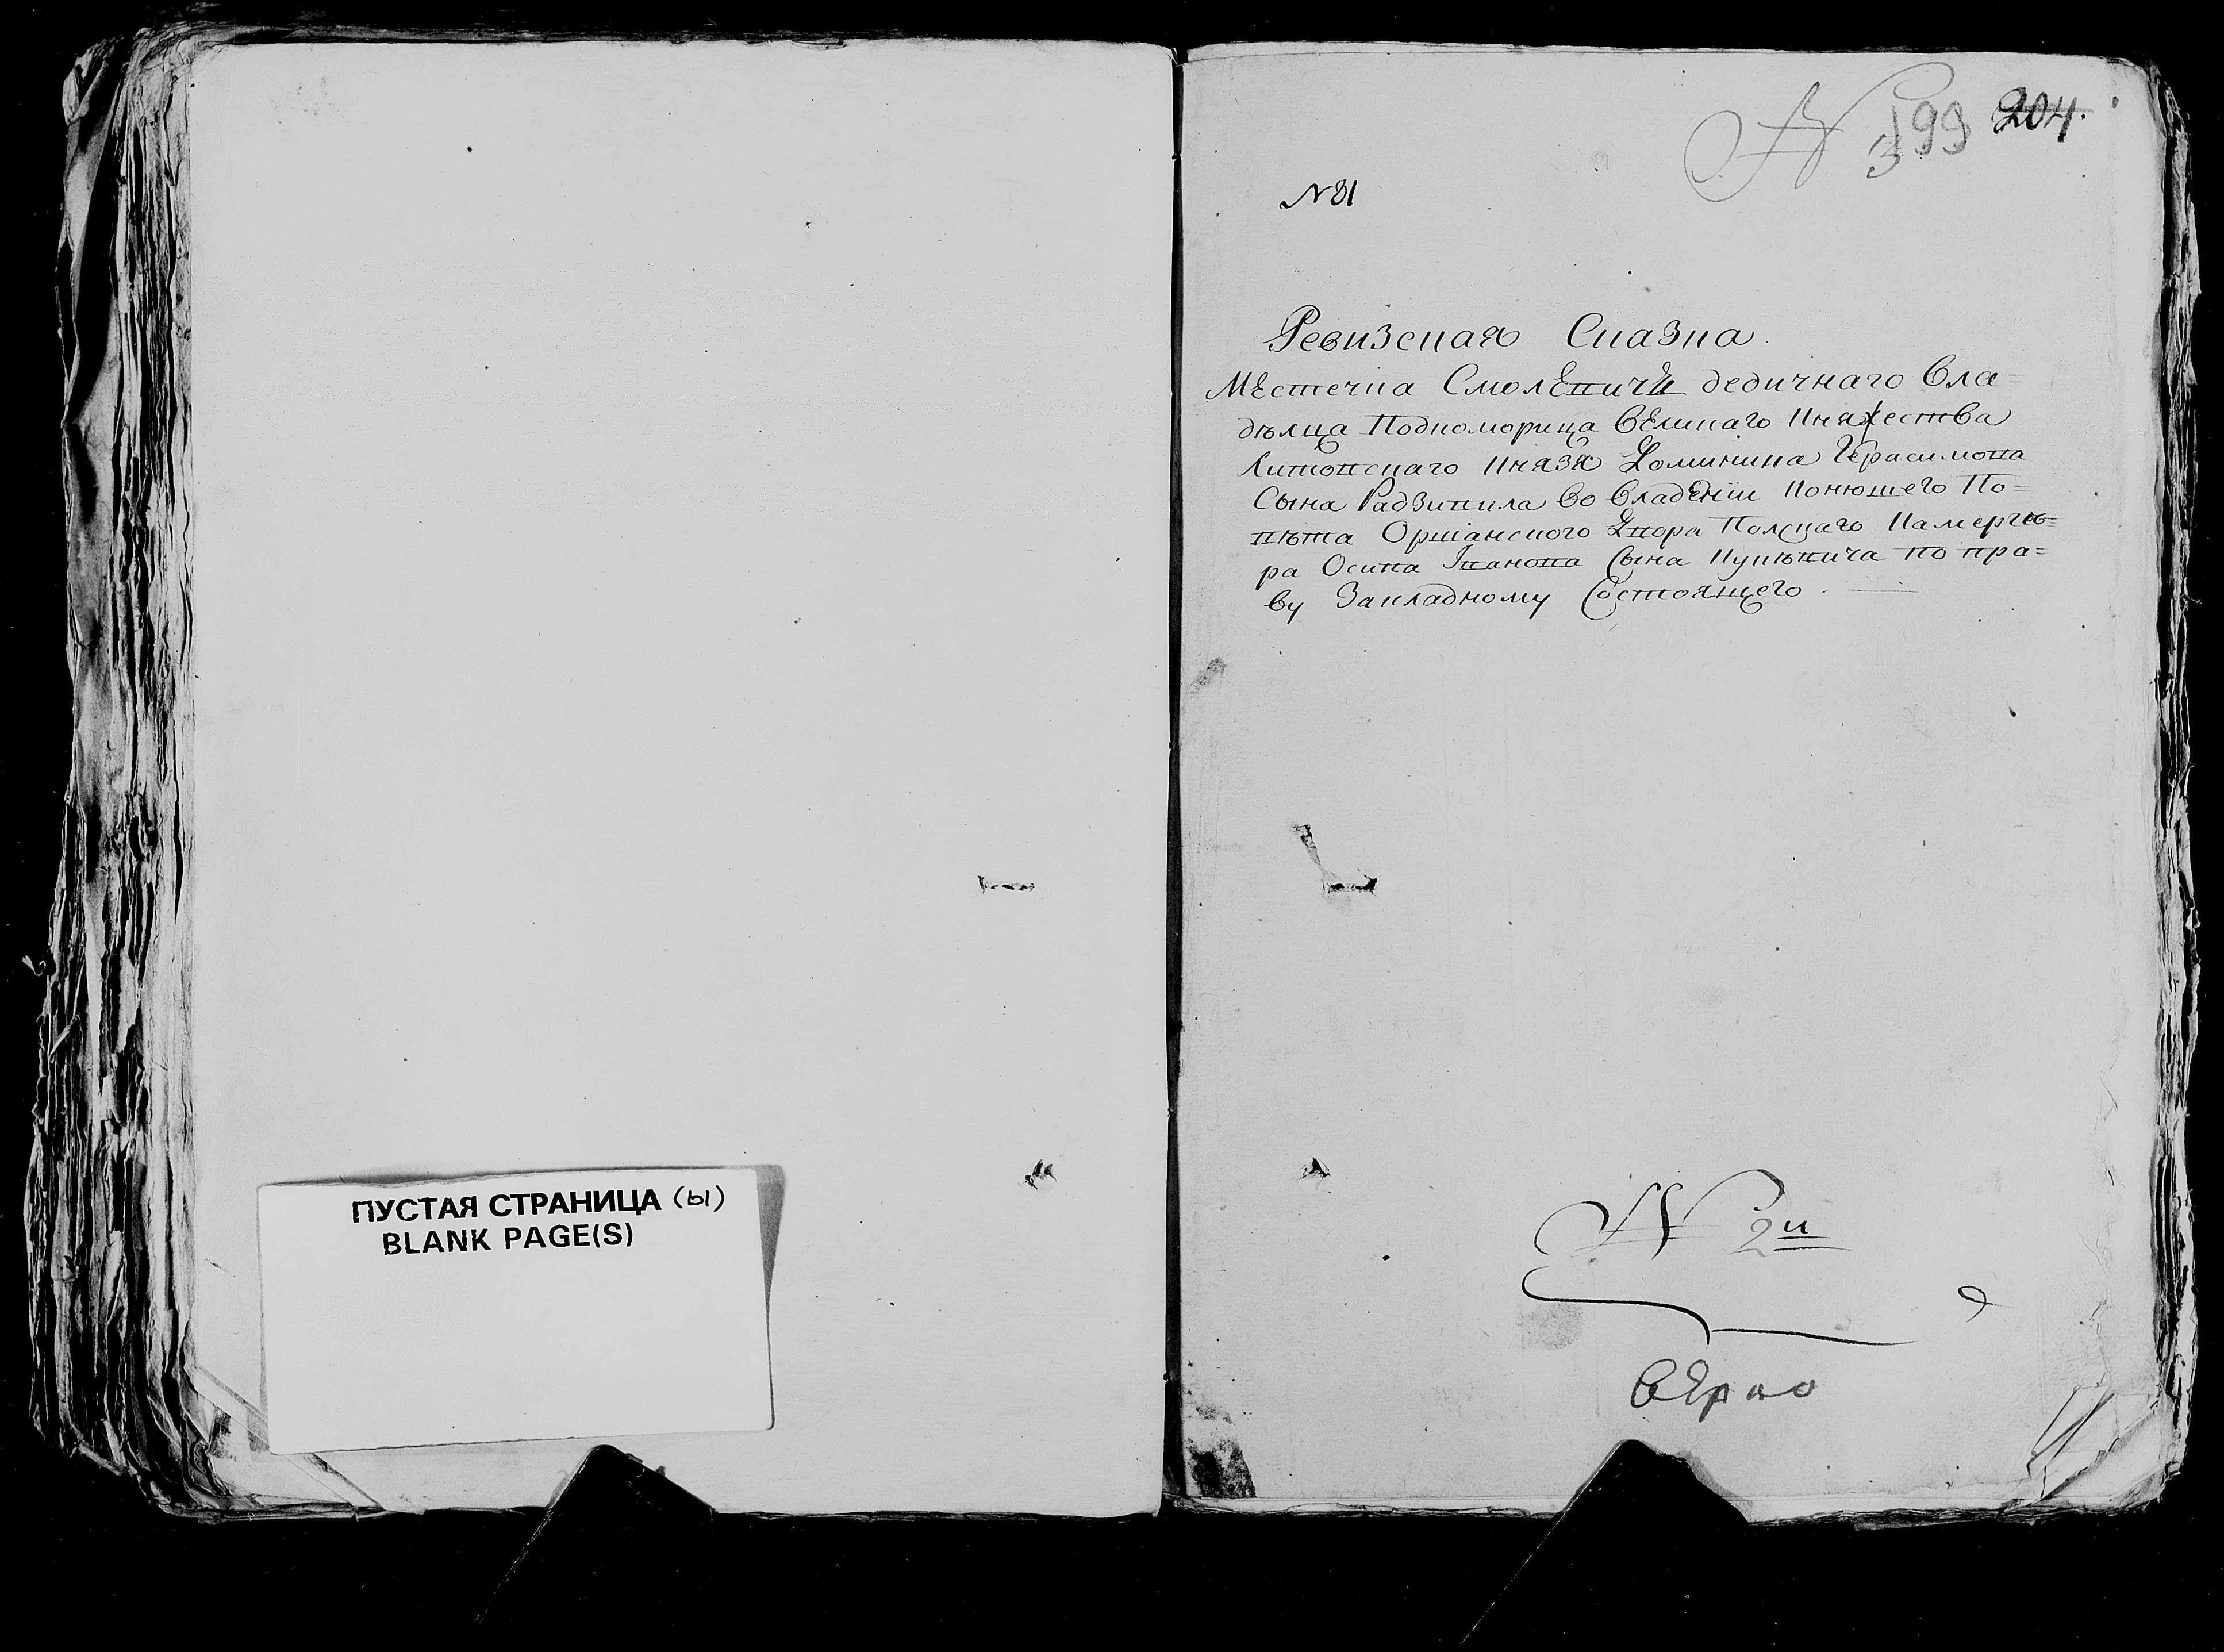 ПУСТАЯ СТРАНИЦА (ы)
BLANK PAGE(S)
199 204.
№ 3
№ 81
Ревизская Сказка.
Мѣстечка Смолѣвичъ дедичнаго Вла=
дѣлца Подкоморица Великаго Княжества
Литовскаго Князя Доминика Герасимова
Сына Радзивила во владѣнїи Конюшего По=
вѣта Оршанского Двора Полскаго Камергѣ=
ра Осипа Іванова Сына Цупѣвича по пра=
ву Закладному Состоящего.
№ 2й
Вѣрно